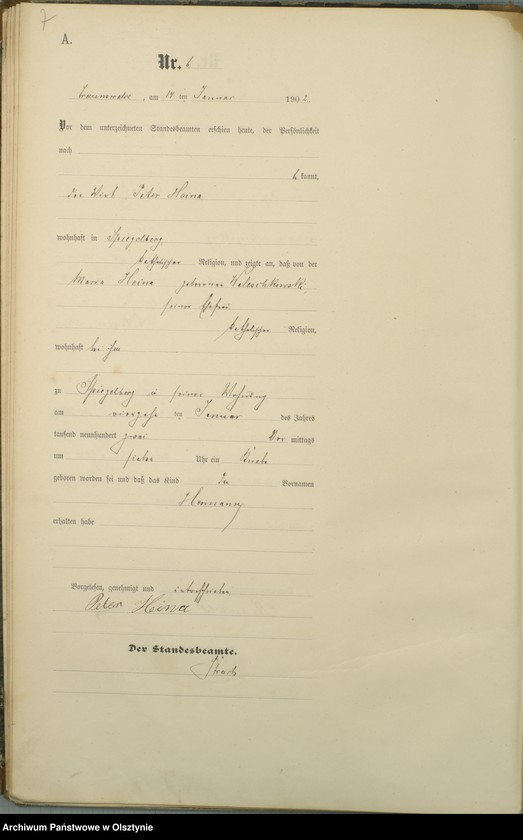 7
A.
Nr. 6
am 14 ten Januar 1902.
Vor dem unterzeichneten Standesbeamten erschien heute, der Persönlichkeit
nach
b kannt,
der Wirt Peter Heina
wohnhaft in Spiegelberg
katholischer Religion, und zeigte an, daß von der
Maria Heina geborenen
seiner Ehefrau
katholischer Religion,
wohnhaft bei ihm
zu Spiegelberg in seiner Wohnung
am vierzehn ten Januar des Jahres
tausend neunhundert zwei Vor mittags
um sieben Uhr ein Knabe
geboren worden sei und daß das Kind den Vornamen
Hermann
erhalten habe
Vorgelesen, genehmigt und unterschrieben
Peter Heina
Der Standesbeamte.
Archiwum Państwowe w Olsztynie